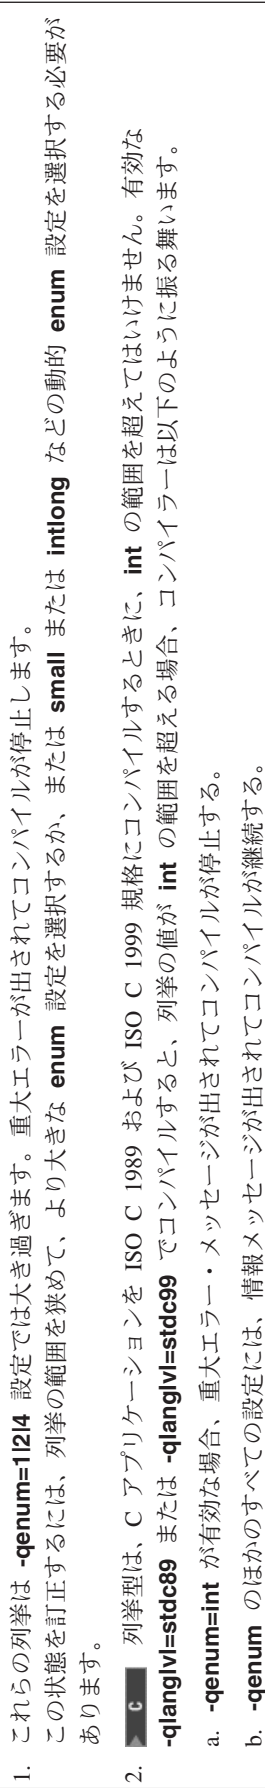 1. これらの列挙は -qenum=1|2|4 設定では大き過ぎます。重大エラーが出されてコンパイルが停止します。
この状態を訂正するには、列挙の範囲を狭めて、より大きな enum 設定を選択するか、または small または intlong などの動的 enum 設定を選択する必要が
あります。
2. C 列挙型は、C アプリケーションを ISO C 1989 および ISO C 1999 規格にコンパイルするときに、int の範囲を超えてはいけません。有効な
-qlanglvl=stdc89 または -qlanglvl=stdc99 でコンパイルすると、列挙の値が int の範囲を超える場合、コンパイラーは以下のように振る舞います。
a. -qenum=int が有効な場合、重大エラー・メッセージが出されてコンパイルが停止する。
b. -qenum のほかのすべての設定には、情報メッセージが出されてコンパイルが継続する。